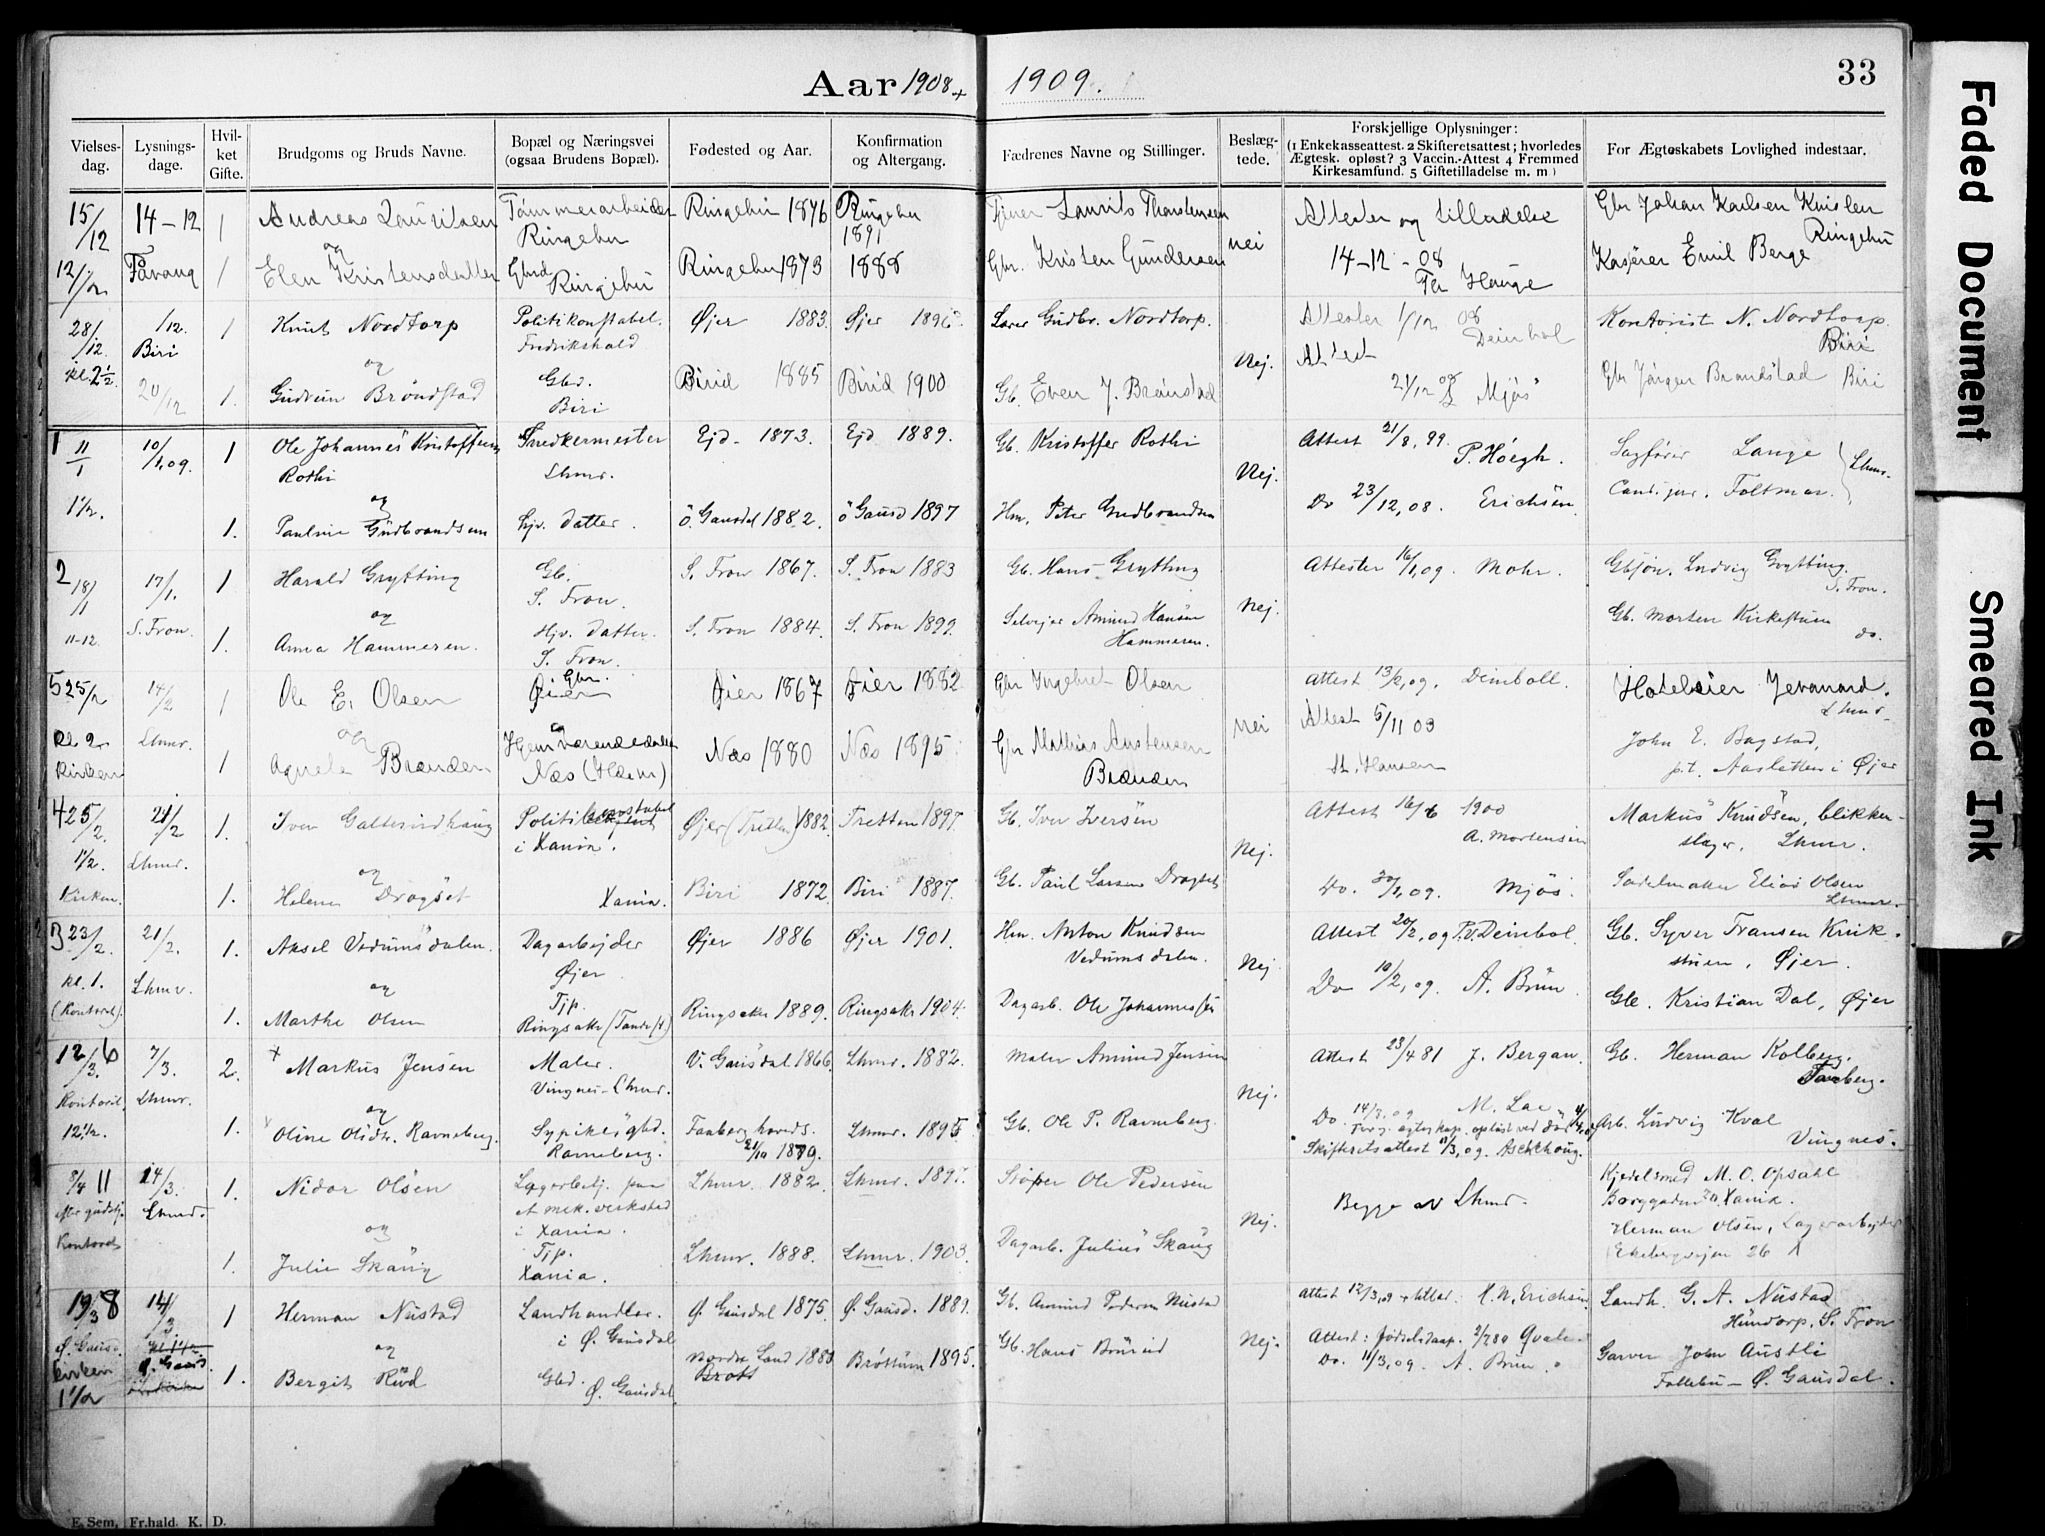 Aar 1908 + 1909.
33
Vielses-dag.
Lysnings-dage.
Hvil-ket Gifte.
Brudgoms og Bruds Navne.
Bopæl og Næringsvei (ogsaa Brudens Bopæl).
Fødested og Aar.
Konfirmation og Altergang.
Fædrenes Navne og Stillinger.
Beslæg-tede.
Forskjellige Oplysninger:
(1 Enkekasseattest. 2 Skifteretsattest; hvorledes
Ægtesk. opløst? 3 Vaccin.-Attest 4 Fremmed
Kirkesamfund. 5 Giftetilladelse m. m)
For Ægteskabets Lovlighed indestaar.
15/12 14-12 1 Andreas Lauritsen Tømmerarbeider Ringebu 1876 Ringebu Tjener Laurits Thorstensen Attester og tilladelse Gbr Johan Karlsen Kvislen
Ringebu 1891 nei 14-12-08 Ringebu
og
12 1/2 Fåvang 1 Elen Kristensdatter Gbrd Ringebu 1873 1888 Gbr. Kristen Gundersen Kaserer Emil Berge
Ringebu Hauge
28/12 1/12. 1 Knut Nordtorp Politikonstabel. Øjer 1883. Øjer Lærer Gudbr. Nordtorp. Attester 1/12 08 Kontorist N. Nordtorp
Biri Fredrikshald Deinbol Biri
kl. 2 1/2. og Nej. Attest
20/12 1. Gudrun Brøndstad Gbd. Birid 1885 Birid 1900 Gb. Even J. Brønstad 21/12 08 Mjøs Gbr Jørgen Brændstad Biri
Biri
1 11/1 10/1,09. 1 Ole Johannes Kristoffersen Snedkermester Ejd. 1873. Ejd 1889. Gb. Kristoffer Rothi Attest 21/8,99. Sagfører Lange
Rothi Lhmr. Nej. P. Høegh. Lhmr.
1 1/2. og Cand. jur. Foltmar.
1. Pauline Gudbrandsen hjv. datter. Ö. Gausdal 1882. Ö Gausd 1897 Hm. Peter Gudbrandsen Do 23/12,08. Erichsen.
2 18/1 17/1. 1 Harald Grytting Gb. S. Fron 1867. S. Fron 1883 Gb. Hans Grytting Attester 16/1,09. Mohr. Gbsøn. Ludvig Grytting.
S. Fron. S. Fron.
11-12 S. Fron. og Nej.
1. Anna Hammeren. Hjv. datter. S. Fron 1884. S. Fron 1899. Selvejer Amund Hansen Gb. Morten Kirkestuen
S. Fron. Hammeren. do.
5 25/2 14/2 1 Ole E. Olsen Gbr. Øier 1867 Øier 1882 Gbr Ingebret Olsen Attest 13/2,09. Deinboll. Hoteleier Jevanord.
Øier Lhmr.
kl. 2 Lhmr. og nei Attest 5/11 03 John E. Bagstad,
Kirken 1 Agnete Brænden Hjemmeværende datter Næs 1880 Næs 1895 Gbr Mathias Austensen p.t. Aasletten i Øjer
Næs (Hedm) Brænden Hansen
4 25/2. 21/2 1. Iver Galterudhaug Politikonstabel Øjer (Tretten) 1882. Tretten 1897. Gb. Iver Iversen Attest 16/6 1900 Markus Knudsen, blikken-
1 1/2. Lhmr. i Xania. Nej. A. Mortensen slager, Lhmr.
og
Kirken. 1. Helene Dragset Xania. Biri 1872 Biri 1887. Gb. Paul Larsen Dragset Do. 30/1,09. Mjøs. Sadelmaker Elias Olsen
Lhmr.
3 23/2. 21/2. 1. Aksel Vedumsdalen. Dagarbejder Øjer 1886 Øjer 1901. Hm. Anton Knudsen Attest 20/2,09 P.V. Deinbol. Gb. Syver Fransen Kruk-
Øjer Vedumsdalen. stuen, Øjer.
kl. 1. Lhmr. og Nej Do 10/2,09. A. Brun.
(Kontoret). 1. Marthe Olsen Tjp. Ringsaker 1889. Ringsakr 1904. Dagarb. Ole Johannessen Gb. Kristian Dal, Øjer
Ringsakr
12/3. 6 7/3. 2. + Markus Jensen Maler. V. Gausdal 1866. Lhmr. 1882. Maler Amund Jensen Attest 23/4 81 J. Bergan. Gb. Herman Kolberg.
Kontoret, Lhmr. Vingnes-Lhmr. Nej. Faaberg.
12 1/2. og
1. Oline Olsdr. Ravneberg. Sypike, Faaberg hoveds. Lhmr. 1895. Gb. Ole P. Ravneberg. Do 14/3.09 M. Lae Arb. Ludvig Kval
Ravneberg. 21/10 1879. Forrige egteskap opløst ved død
Skifteretsattest 11/3,09. Aschehoug. Vingnes.
8/4 11 14/3. 1. Nidar Olsen Lagerarbeij. paa Lhmr. 1882. Lhmr. 1897. Støper Ole Pedersen Begge av Lhmr. Kjedelsmed M. O. Opsahl
efter gudstj. Lhmr. et mek. verksted Borggaden Xania.
Kontoret i Xania.
og Nej. Herman Olsen, Lagerarbejder
1. Julie Skaug Tjp. Lhmr. 1888. Lhmr. 1903. Dagarb. Julius Skaug Ekebergvejen 26
Xania.
19/3 8 14/3 1 Herman Nustad Landhandler. Ø. Gausdal 1875. Ø. Gausd. 1889. Gb. Amund Pedersen Nustad Attest 12/3,09 H. N. Erichsen Landh. G. A. Nustad
Ø. Gausd. i Ø. Gausdal Hundorp, S. Fron
kirken Ø. Gausd. og Nej.
1 1/2 1. Bergit Rud Gbd. Nordre Land Brøttum 1895. Gb. Hans Attest: fødselsdaap. Qvale Garver John Austli
Ø. Gausdal Brøtt Do. 11/3,09. A. Brun. Follebu - Ø. Gausdal.
E. Sem, Fr.hald. K. D.
Faded Document
Smeared Ink